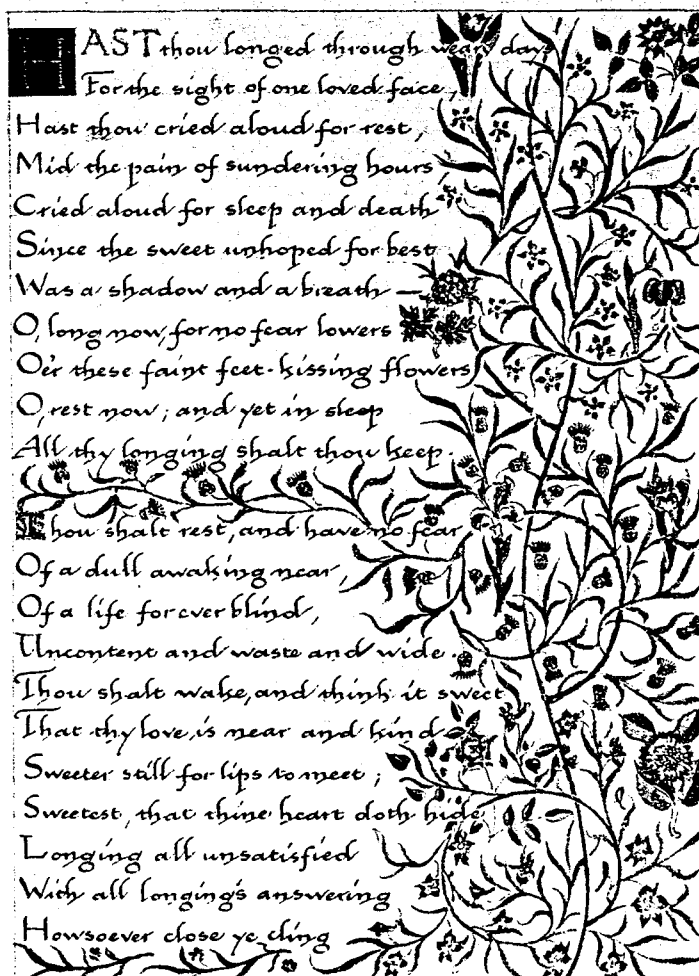 HAST thou longed through weary days
For the sight of one loved face,
Hast thou cried aloud for rest,
Mid the pain of sundering hours,
Cried aloud for sleep and death
Since the sweet unhoped for best
Was a shadow and a breath —
O, long now, for no fear lowers
O'er these faint feet-kissing flowers
O, rest now; and yet in sleep
All thy longing shalt thou keep.
Thou shalt rest, and have no fear
Of a dull awaking near,
Of a life for ever blind,
Uncontent and waste and wide.
Thou shalt wake, and think it sweet
That thy love is near and kind
Sweeter still for lips to meet;
Sweetest, that thine heart doth hide
Longing all unsatisfied
With all longing's answering
Howsoever close ye cling